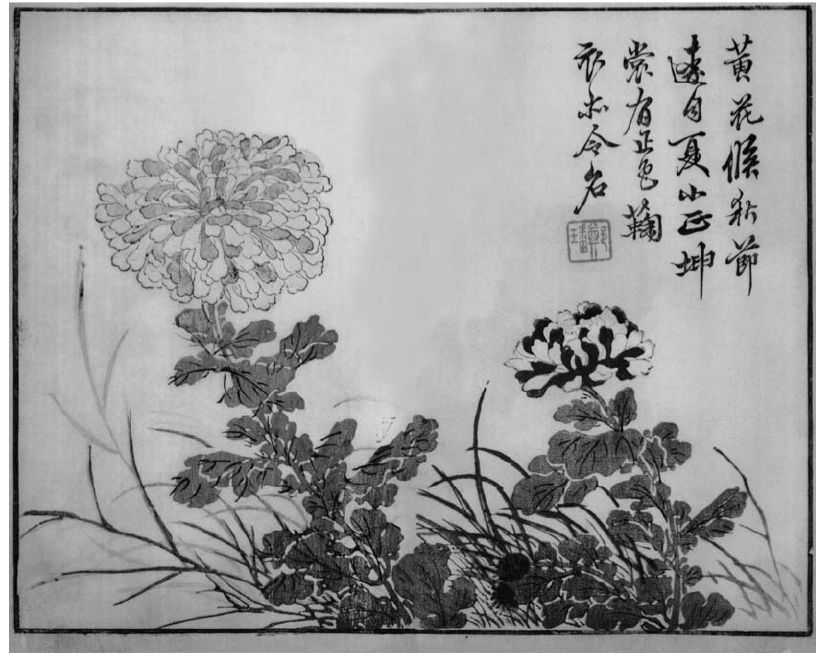 黃花候秋節
遠自夏小正坤
裳有正色鞠
衣亦令名